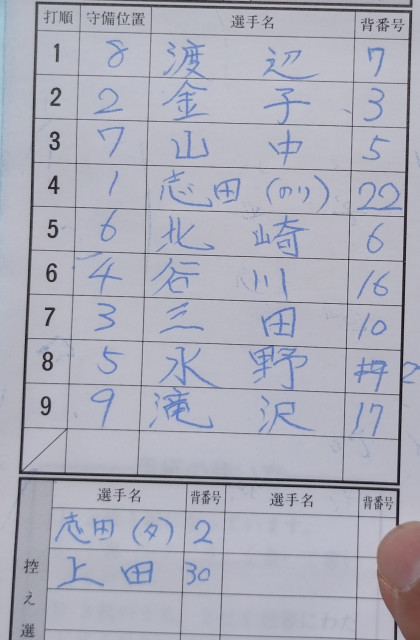 打順 守備位置 選手名 背番号
1 8 渡辺 7
2 2 金子 3
3 7 山中 5
4 1 志田(のり) 22
5 6 北崎 6
6 4 谷川 16
7 3 三田 10
8 5 水野
9 9 滝沢 17
選手名 背番号 選手名 背番号
志田(タ) 2
上田 30
控え選